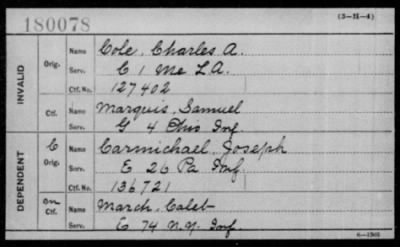 180078
(3-H-4)
INVALID
Orig.
Name Cole, Charles A.
Serv. C 1 Me L.A.
Ctf. No. 127402
Ctf.
Name Marquis, Samuel
Serv. G 4 Ohio Inf
DEPENDENT
C
Orig.
Name Carmichael, Joseph
Serv. E 26 Pa Inf
Ctf. No. 136721
Ctf.
Name March, Caleb
Serv. C 74 N.Y. Inf.